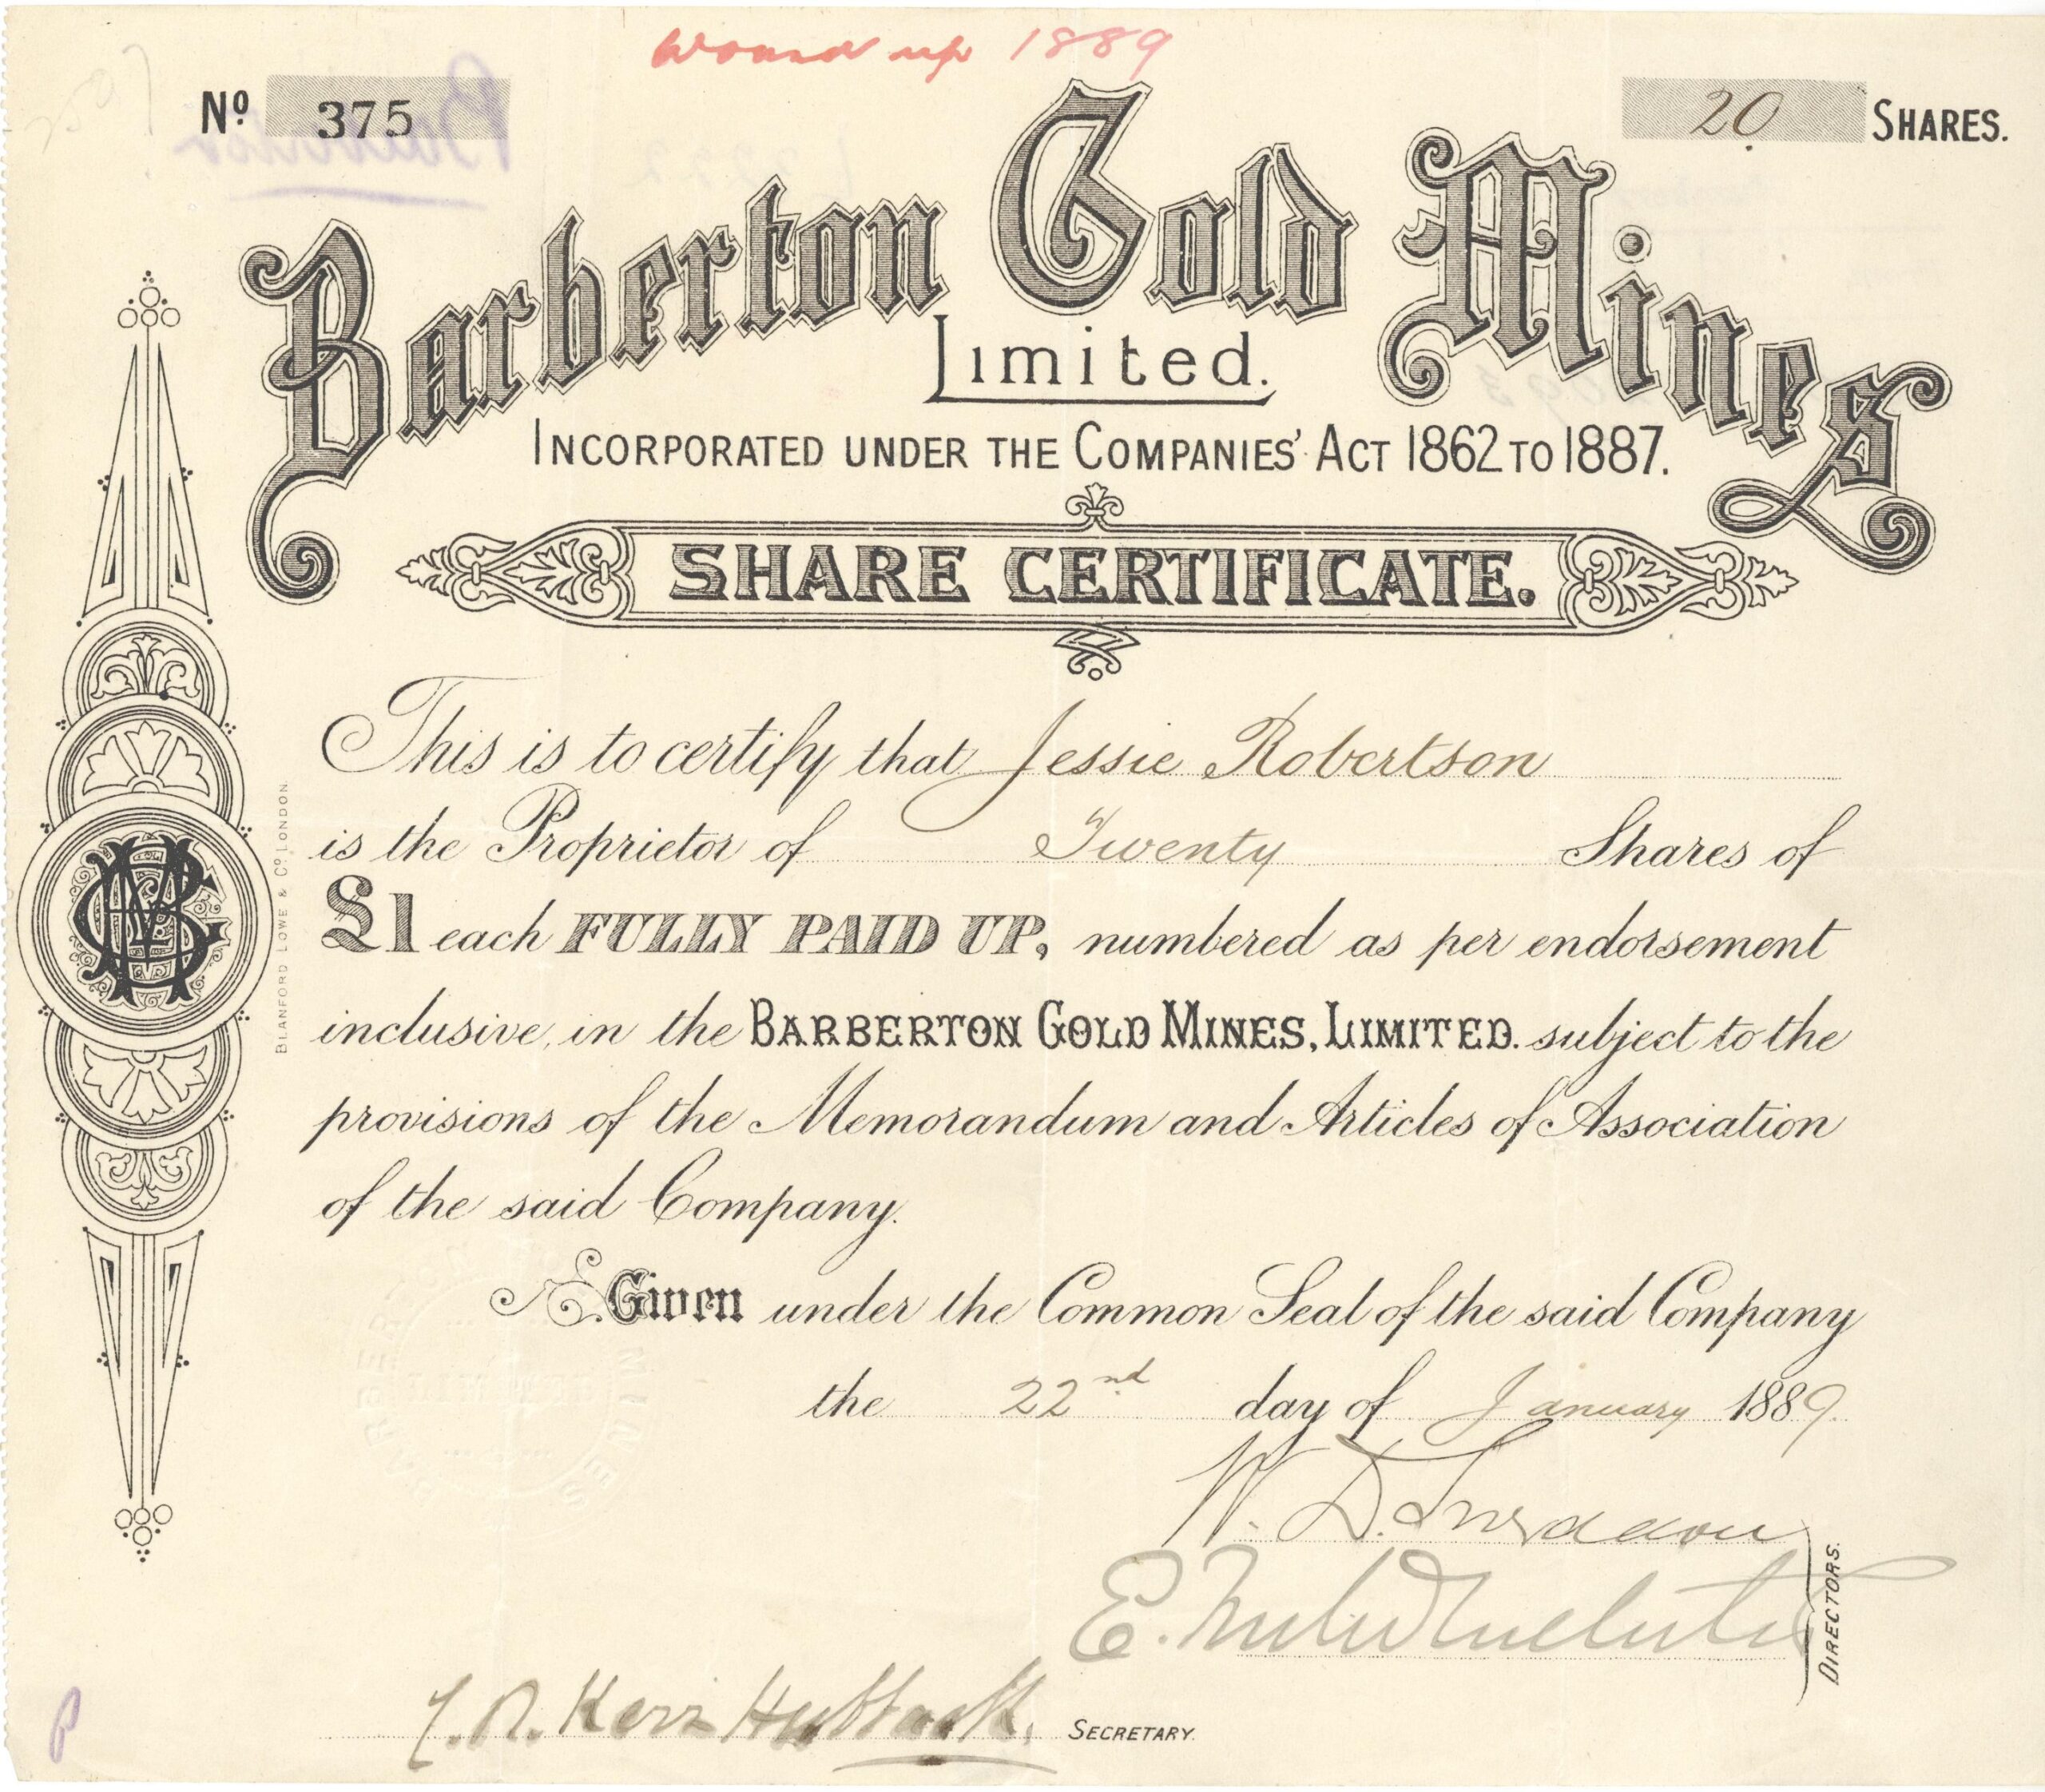 Wound up 1889
Nº 375
20 SHARES.
Barberton Gold Mines
Limited.
INCORPORATED UNDER THE COMPANIES' ACT 1862 TO 1887.
SHARE CERTIFICATE.
This is to certify that Jessie Robertson
is the Proprietor of Twenty Shares of
£1 each FULLY PAID UP, numbered as per endorsement
inclusive, in the BARBERTON GOLD MINES, LIMITED. subject to the
provisions of the Memorandum and Articles of Association
of the said Company.
Given under the Common Seal of the said Company
the 22nd day of January 1889.
W. D.
E.
DIRECTORS.
Kerr SECRETARY.
BLANFORD LOWE & Cº LONDON.